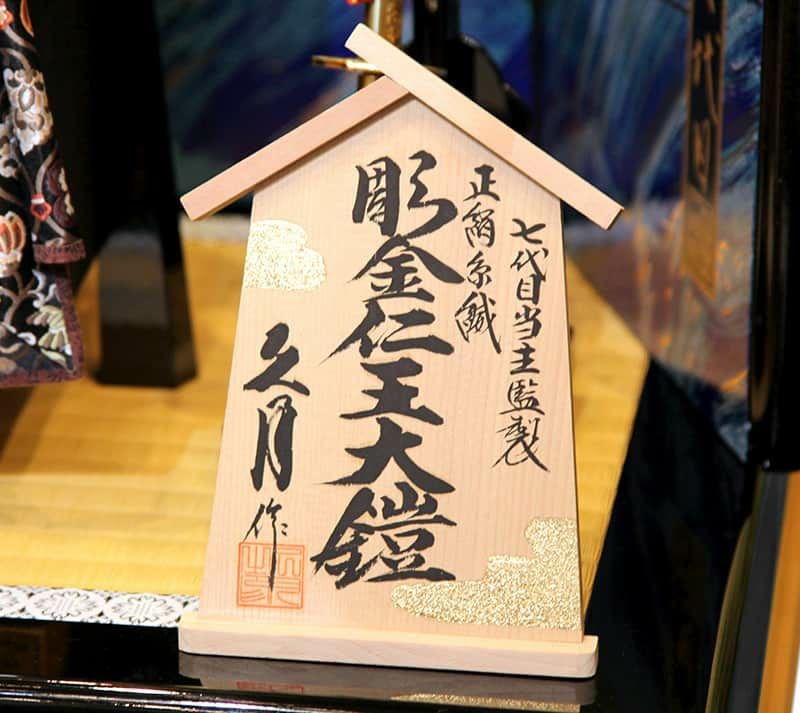 七代目当主監製
正絹糸縅
彫金仁王大鎧
久月作